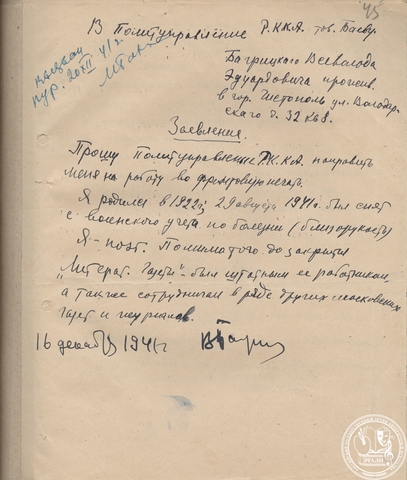 45
В Политуправление Р.К.К.А. тов. Баеву
Багрицкого Всеволода
Эдуардовича прожив.
в гор. Чистополь ул. Володар-
ского д. 32 кв 8.
20 XII 41 г.
Заявление.
Прошу Политуправление Р.К.К.А. направить
меня на работу во фронтовую печать.
Я родился в 1922 г. 29 августа 1941 г. был снят
с воинского учета по болезни (близорукость)
Я – поэт. Помимо того до закрытия
„Литерат. Газеты" был штатным ее работником,
а также сотрудничал в ряде других московских
газет и журналов.
16 декабря 1941 г.
РГАЛИ